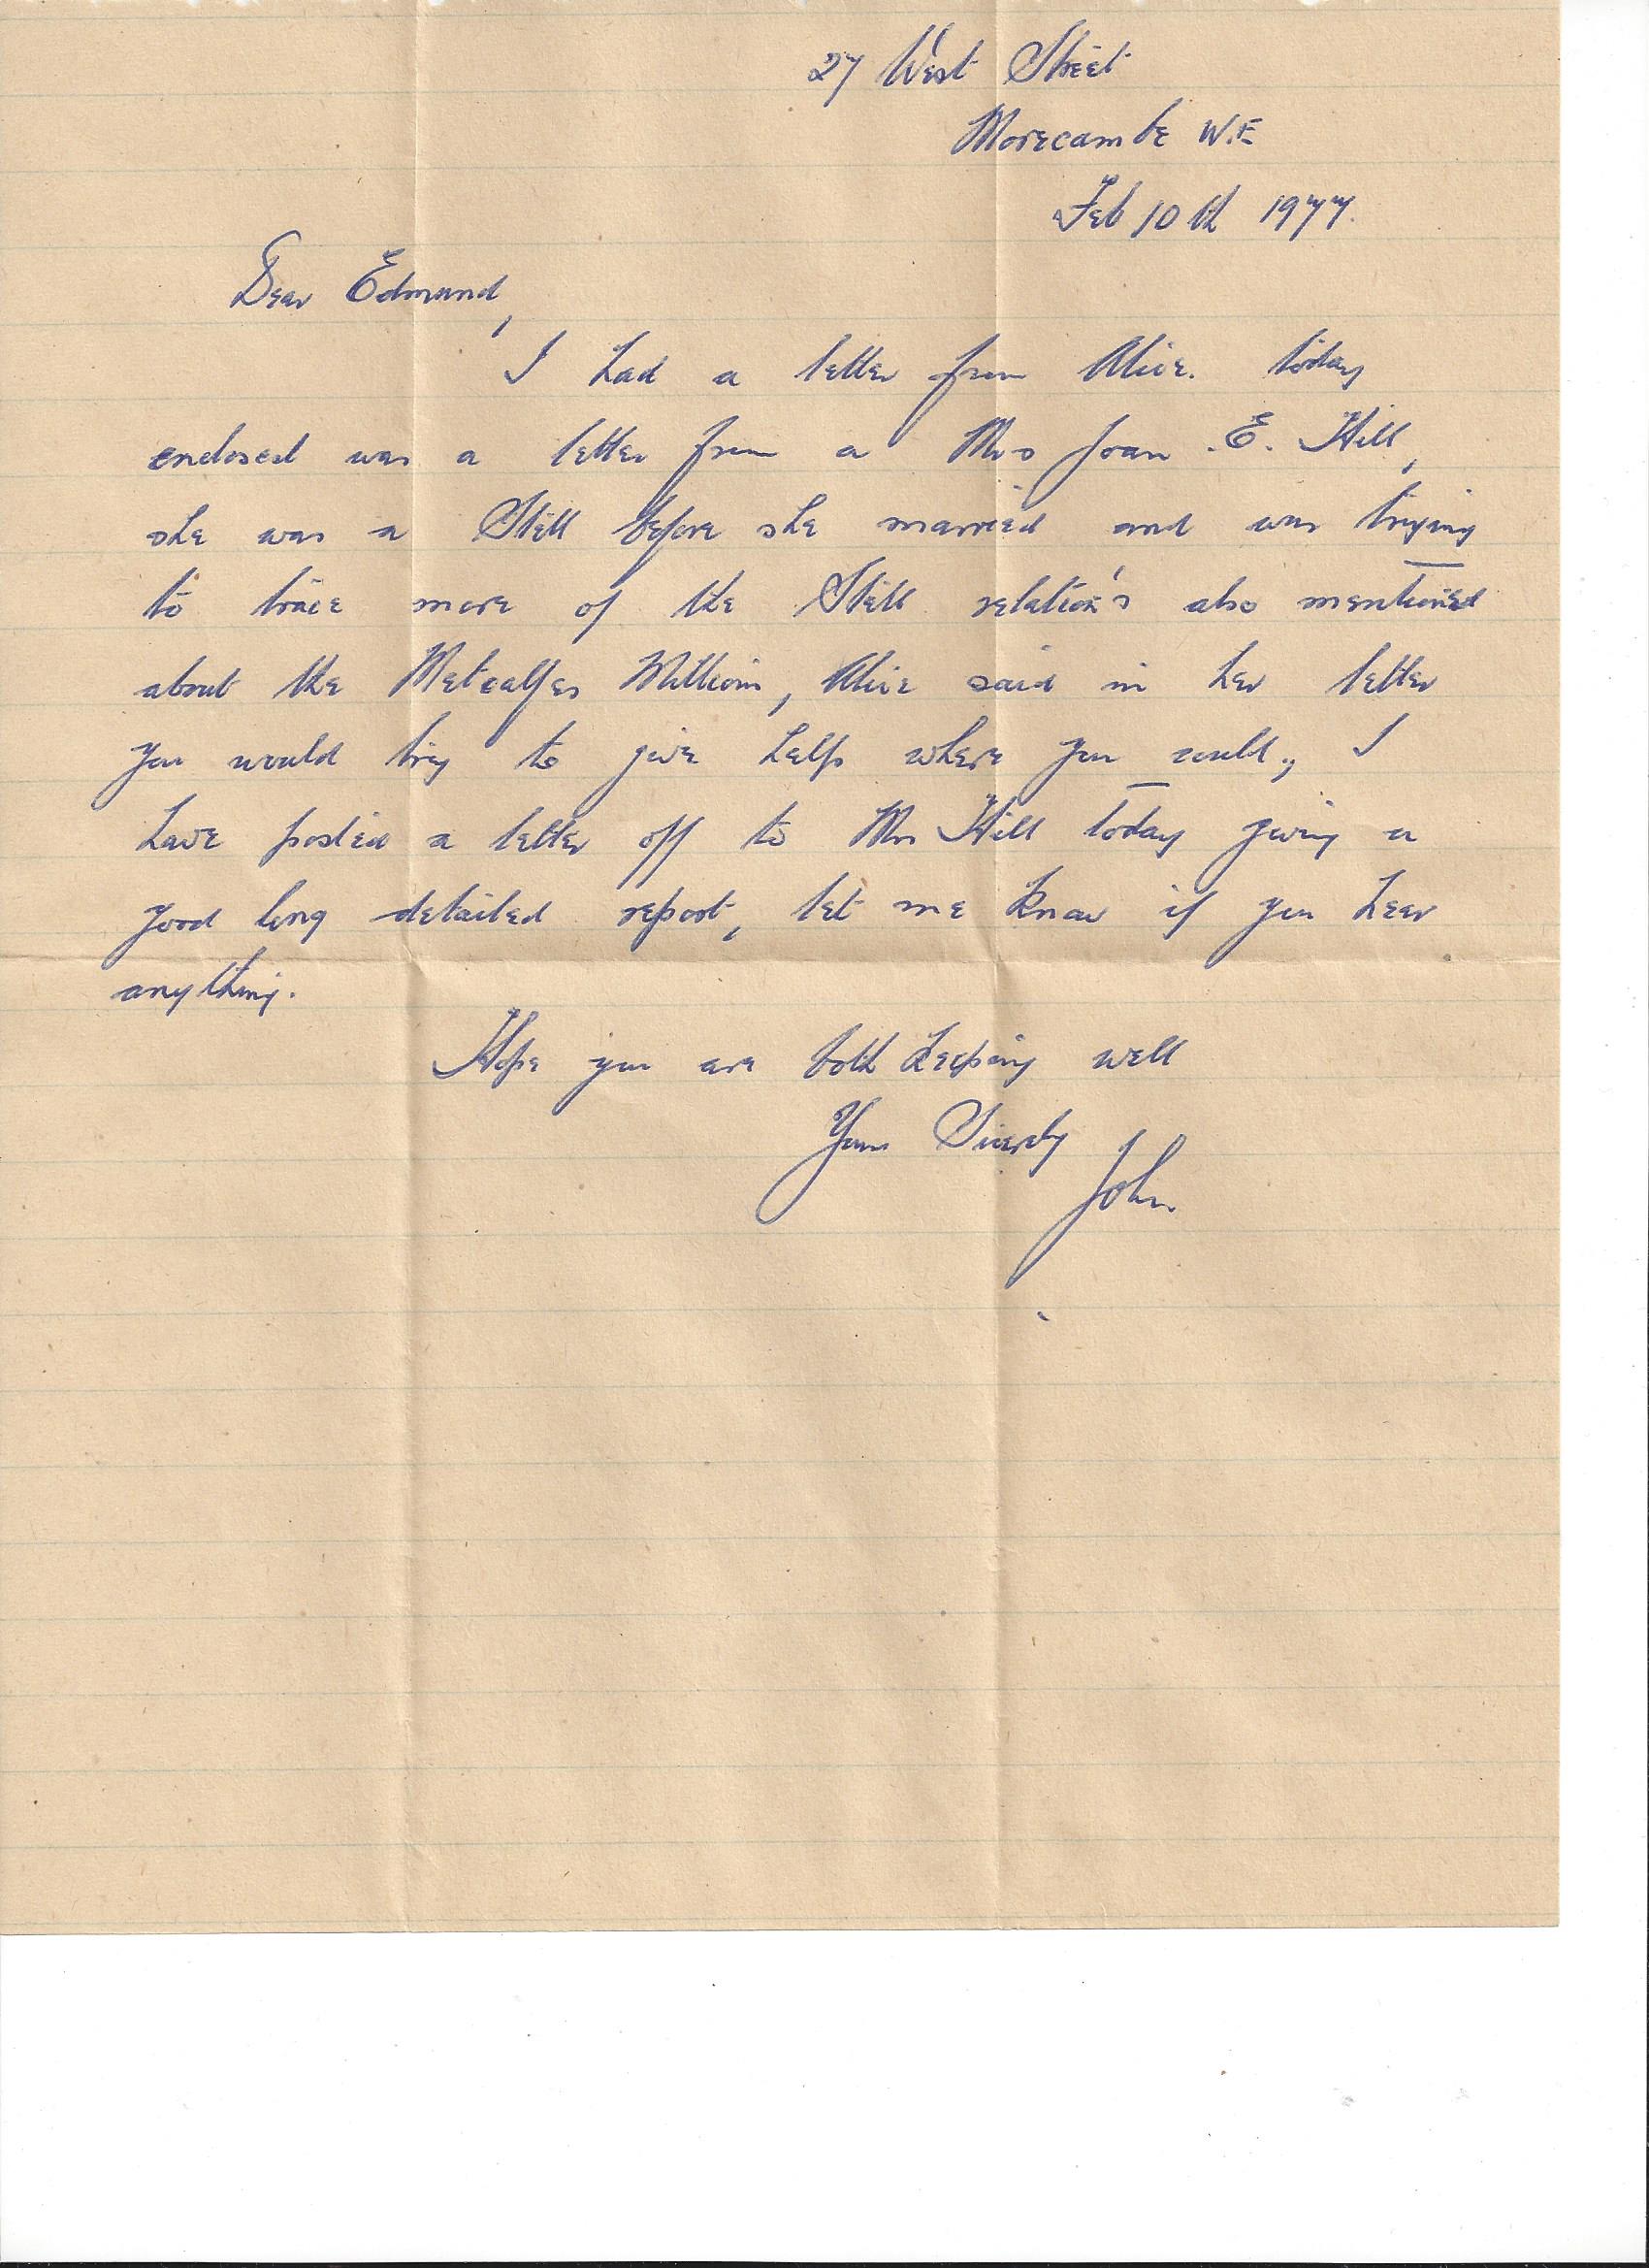 27 West Street
Morecambe W.E
Feb 10th 1977.
Dear Edmund,
I had a letter from Alice. today
enclosed was a letter from a Mrs Joan .E. Hill,
she was a Still before she married and was trying
to trace more of the Still relation's also mentioned
about the Metcalfes Millions, Alice said in her letter
you would try to give help where you could., I
have posted a letter off to Mrs Hill today giving a
good long detailed report, let me know if you hear
anything.
Hope you are both keeping well
Yours Sincerely
John.